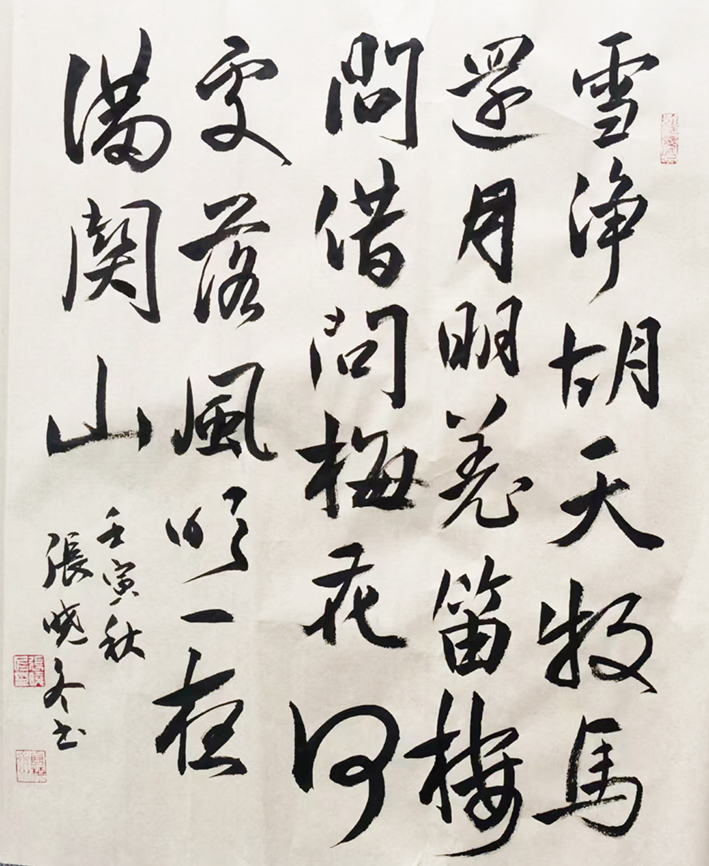 雪净胡天牧馬
還月明羌笛樓
間借问梅花何
處落風吹一夜
滿関山
壬寅秋
張晓冬书